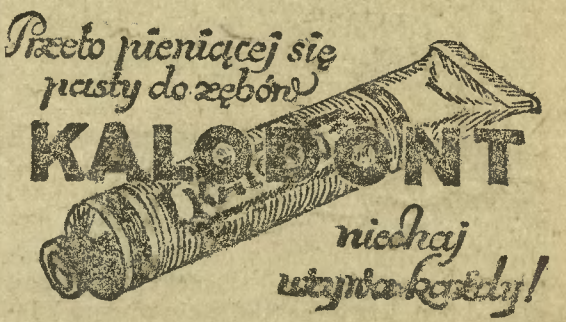 Przeto pieniącej się
pasty do zębów
KALODONT
niechaj
używa każdy!